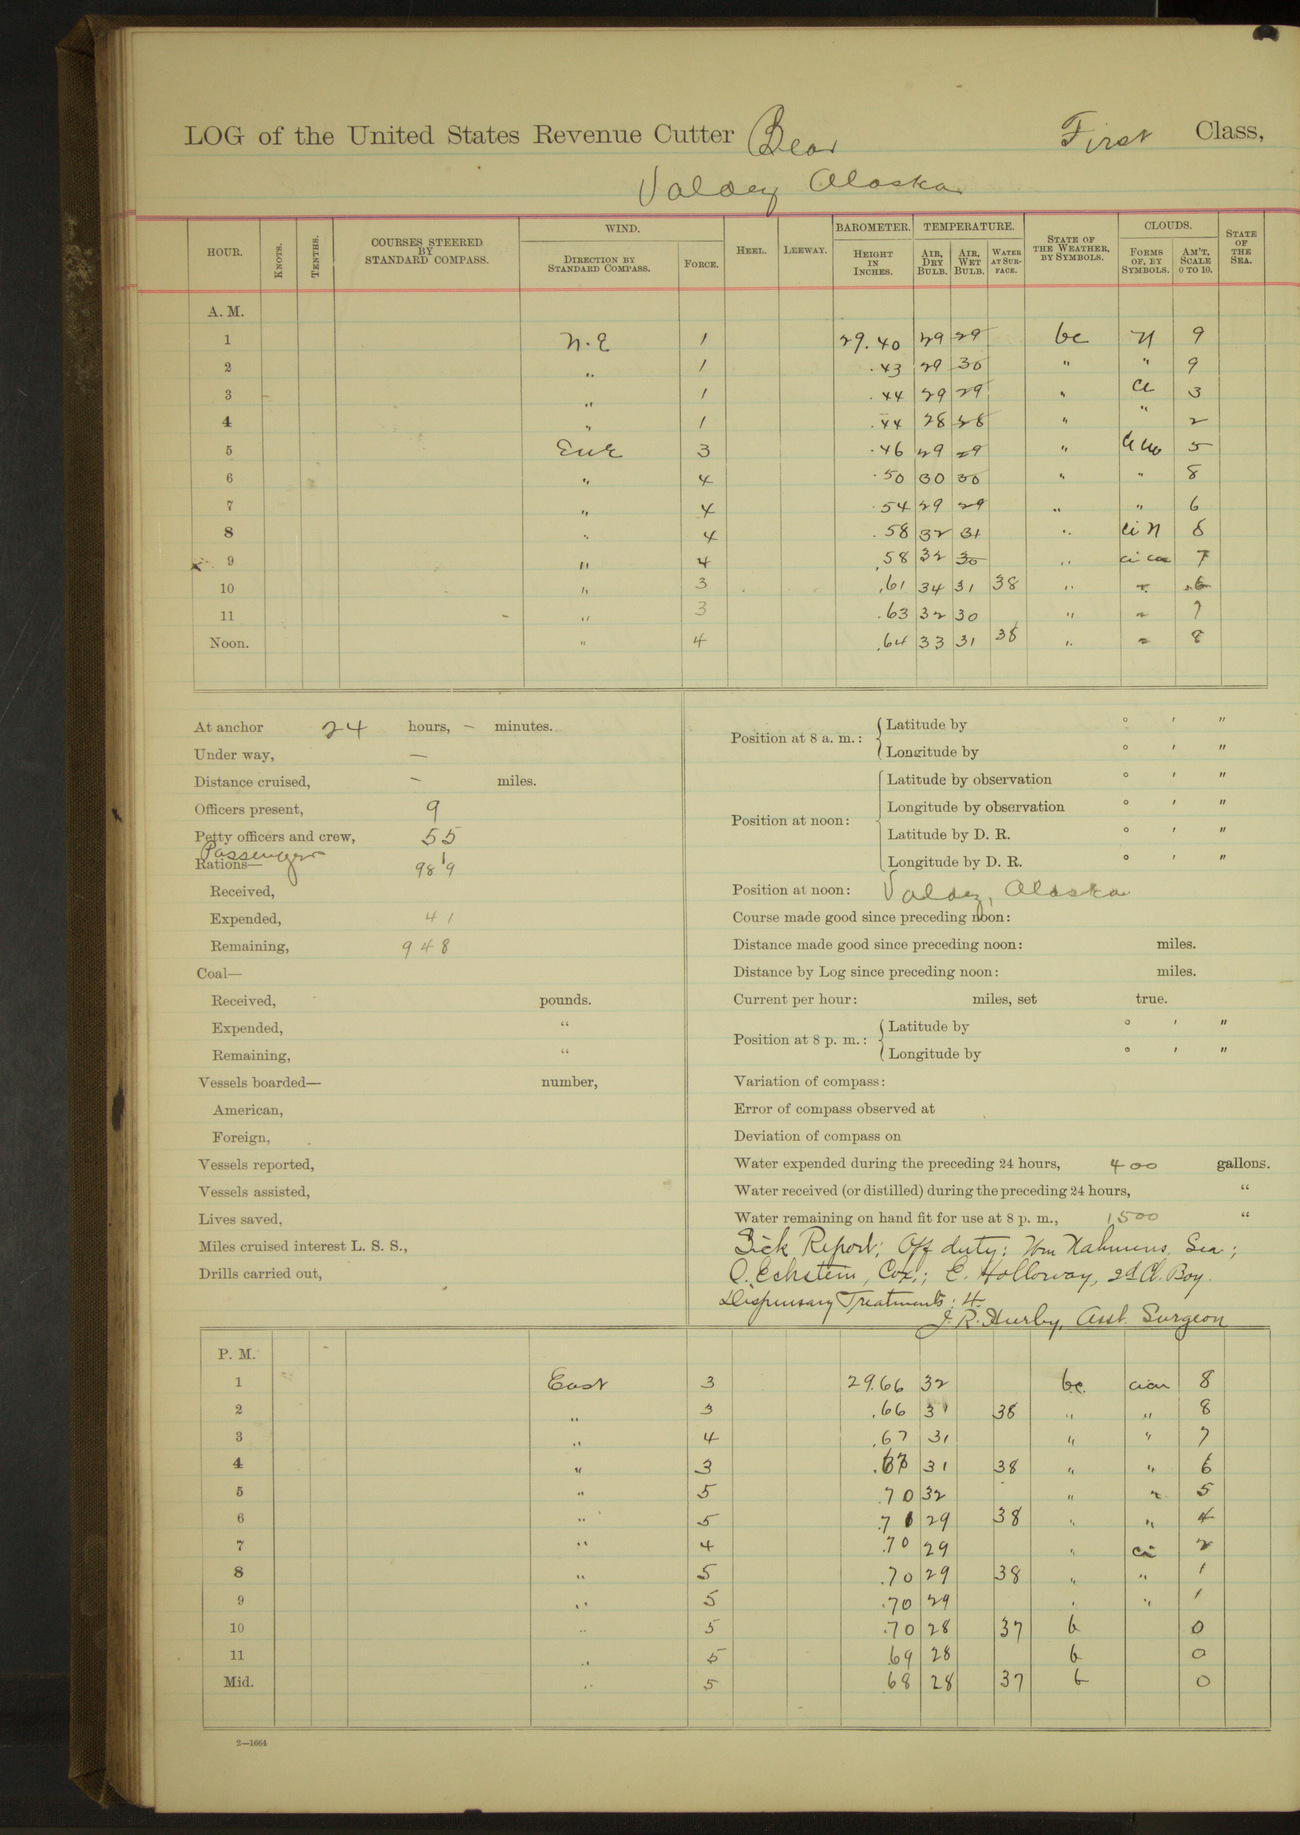 LOG of the United States Revenue Cutter Bear First Class,
Valdez Alaska
HOUR. KNOTS. TENTHS. COURSES STEERED BY STANDARD COMPASS. WIND. DIRECTION BY STANDARD COMPASS. FORCE. HEEL. LEEWAY. BAROMETER. HEIGHT IN INCHES. TEMPERATURE. AIR, DRY BULB. AIR, WET BULB. WATER AT SURFACE. STATE OF THE WEATHER, BY SYMBOLS. CLOUDS. FORMS OF, BY SYMBOLS. AM'T, SCALE 0 TO 10. STATE OF THE SEA.
A. M.
1 N.E 1 29.40 29 29 bc N 9
2 " 1 .43 29 30 " " 9
3 " 1 .44 29 29 " Ci 3
4 " 1 .44 28 28 " " 2
5 ENE 3 .46 29 29 " 5
6 " 4 .50 30 30 " " 8
7 " 4 .54 29 29 " " 6
8 " 4 .58 32 31 " Ci N 8
9 " 4 .58 32 30 " 7
10 " 3 .61 34 31 38 " " 6
11 " 3 .63 32 30 " " 7
Noon. " 4 .64 33 31 38 " " 8
At anchor 24 hours, — minutes.
Under way, —
Distance cruised, — miles.
Officers present, 9
Petty officers and crew, 55
Passenger 1
Rations— 989
Received,
Expended, 41
Remaining, 948
Coal—
Received, pounds.
Expended, "
Remaining, "
Vessels boarded— number,
American,
Foreign,
Vessels reported,
Vessels assisted,
Lives saved,
Miles cruised interest L. S. S.,
Drills carried out,
Position at 8 a. m.: Latitude by ° ' "
Longitude by ° ' "
Position at noon: Latitude by observation ° ' "
Longitude by observation ° ' "
Latitude by D. R. ° ' "
Longitude by D. R. ° ' "
Position at noon: Valdez, Alaska
Course made good since preceding noon:
Distance made good since preceding noon: miles.
Distance by Log since preceding noon: miles.
Current per hour: miles, set true.
Position at 8 p. m.: Latitude by ° ' "
Longitude by ° ' "
Variation of compass:
Error of compass observed at
Deviation of compass on
Water expended during the preceding 24 hours, 400 gallons.
Water received (or distilled) during the preceding 24 hours, "
Water remaining on hand fit for use at 8 p. m., 1500 "
Sick Report; Off duty: Wm Nahmens, Sea;
O. Eckstein, Cox; E. Holloway, 2d Cl. Boy.
Dispensary Treatments: 4.
J. R. Hurley, Asst. Surgeon
P. M.
1 East 3 29.66 32 bc. 8
2 " 3 .66 31 38 " " 8
3 " 4 .67 31 " " 7
4 " 3 31 38 " " 6
5 " 5 .70 32 " " 5
6 " 5 29 38 " " 4
7 " 4 .70 29 " Ci 2
8 " 5 .70 29 38 " " 1
9 " 5 .70 29 " " 1
10 " 5 .70 28 37 b 0
11 " 5 69 28 b 0
Mid. " 5 68 28 37 b 0
2—1664